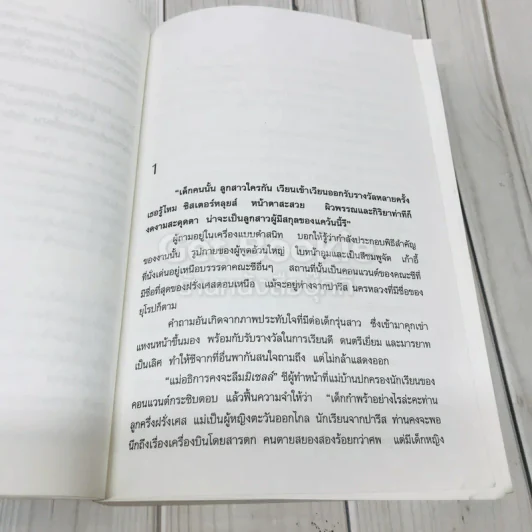 1
“เด็กคนนั้น ลูกสาวใครกัน เวียนเข้าเวียนออกรับรางวัลหลายครั้ง
เธอรู้ไหม ซิสเตอร์หลุยส์ หน้าตาสะสวย ผิวพรรณและกิริยาท่าทีก็
งดงามสะดุดตา น่าจะเป็นลูกสาวผู้มีสกุลของแคว้นนี้รึ”
ผู้ถามอยู่ในเครื่องแบบดำสนิท บอกให้รู้ว่ากำลังประกอบพิธีสำคัญ
ของงานนั้น รูปกายของผู้พูดอ้วนใหญ่ ใบหน้าอูมและเป็นสีชมพูจัด เก้าอี้
ที่นั่งเด่นอยู่เหนือบรรดาคณะชีอื่นๆ สถานที่นั้นเป็นคอนแวนต์ของคณะชีที่
มีชื่อที่สุดของฝรั่งเศสตอนเหนือ แม้จะอยู่ห่างจากปารีส นครหลวงที่มีชื่อของ
ยุโรปก็ตาม
คำถามอันเกิดจากภาพประทับใจที่มีต่อเด็กรุ่นสาว ซึ่งเข้ามาคุกเข่า
แทบหน้าขึ้นมอง พร้อมกับรับรางวัลในการเรียนดี ดนตรีเยี่ยม และมารยาท
เป็นเลิศ ทำให้ชีจากที่อื่นพากันสนใจถามถึง แต่ไม่กล้าแสดงออก
“แม่อธิการคงจะลืมมิเชลล์” ชีผู้ทำหน้าที่แม่บ้านปกครองนักเรียนของ
คอนแวนต์กระซิบตอบ แล้วฟื้นความจำให้ว่า “เด็กกำพร้าอย่างไรล่ะคะท่าน
ลูกครึ่งฝรั่งเศส แม่เป็นผู้หญิงตะวันออกไกล นักเรียนจากปารีส ท่านคงจะพอ
นึกถึงเรื่องเครื่องบินโดยสารตก คนตายสยองสองร้อยกว่าศพ แต่มีเด็กหญิง